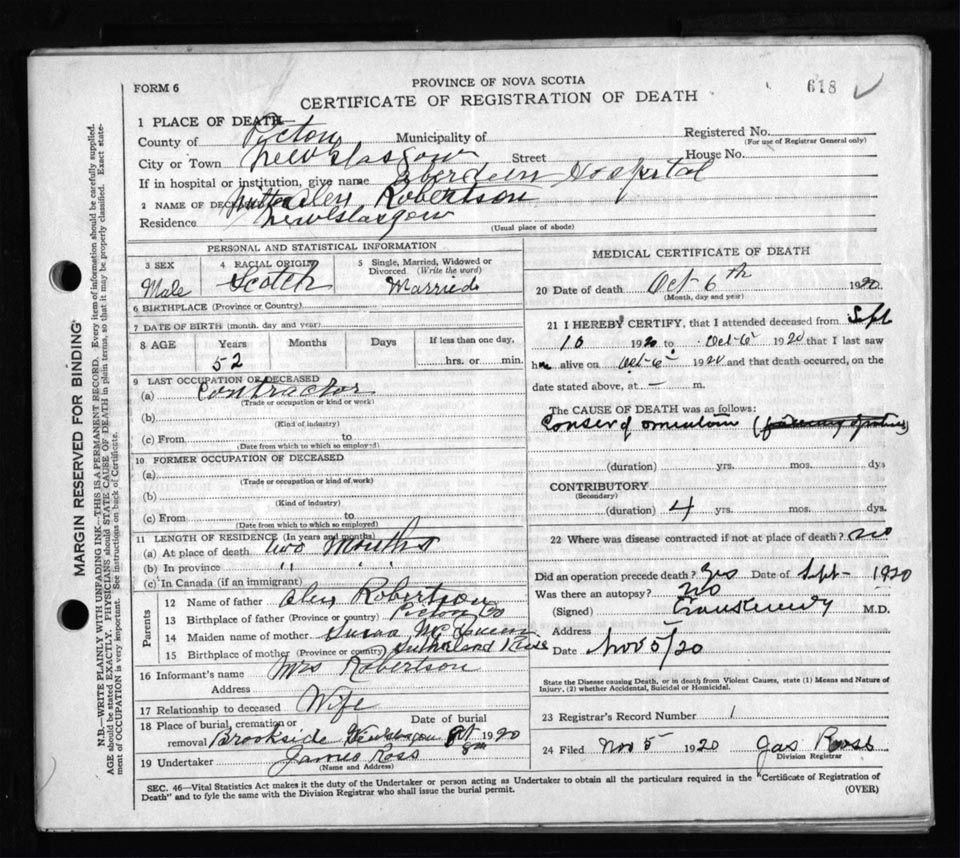 FORM 6
PROVINCE OF NOVA SCOTIA
618
CERTIFICATE OF REGISTRATION OF DEATH
1 PLACE OF DEATH
County of Picton Municipality of
Registered No.
(For use of Registrar General only)
City or Town New Glasgow Street House No.
If in hospital or institution, give name Aberdeen Hospital
2 NAME OF DECEASED Alex Robertson
Residence New Glasgow
(Usual place of abode)
PERSONAL AND STATISTICAL INFORMATION
3 SEX Male
4 RACIAL ORIGIN Scotch
5 Single, Married, Widowed or Divorced (Write the word) Married
6 BIRTHPLACE (Province or Country)
7 DATE OF BIRTH (month, day and year)
8 AGE Years Months Days If less than one day,
52 hrs. or min.
9 LAST OCCUPATION OF DECEASED
(a) Contractor
(Trade or occupation or kind of work)
(b)
(Kind of industry)
(c) From to
(Date from which to which so employed)
10 FORMER OCCUPATION OF DECEASED
(a)
(Trade or occupation or kind of work)
(b)
(Kind of industry)
(c) From to
(Date from which to which so employed)
11 LENGTH OF RESIDENCE (In years and months)
(a) At place of death two Months
(b) In province " "
(c) In Canada (if an immigrant)
Parents
12 Name of father Alex Robertson
13 Birthplace of father (Province or country) Picton Co
14 Maiden name of mother Susan
15 Birthplace of mother (Province or country) Sutherland River
16 Informant's name Mrs Robertson
Address
17 Relationship to deceased Wife
18 Place of burial, cremation or removal Brookside New Glasgow Date of burial Oct 8th 1920
19 Undertaker James Ross
(Name and Address)
MEDICAL CERTIFICATE OF DEATH
20 Date of death Oct 6th 1920
(Month, day and year)
21 I HEREBY CERTIFY, that I attended deceased from Sept
10 1920 to Oct-6 1920 that I last saw
him alive on Oct-6 1920 and that death occurred, on the
date stated above, at - m.
The CAUSE OF DEATH was as follows:
Cancer of omentum
(duration) yrs. mos. dys
CONTRIBUTORY
(Secondary)
(duration) 4 yrs. mos. dys.
22 Where was disease contracted if not at place of death? no
Did an operation precede death? Yes Date of Sept- 1920
Was there an autopsy? No
(Signed) M.D.
Address
Date Nov 5/20
State the Disease causing Death, or in death from Violent Causes, state (1) Means and Nature of
Injury, (2) whether Accidental, Suicidal or Homicidal.
23 Registrar's Record Number 1
24 Filed Nov 5 1920 Jas Ross
Division Registrar
SEC. 46—Vital Statistics Act makes it duty of the Undertaker or person acting as Undertaker to obtain all the particulars required in the "Certificate of Registration of
Death" and to fyle the same with the Division Registrar who shall issue the burial permit.
(OVER)
MARGIN RESERVED FOR BINDING
N.B.—WRITE PLAINLY WITH UNFADING INK—THIS IS A PERMANENT RECORD. Every item of information should be carefully supplied.
AGE should be stated EXACTLY. PHYSICIANS should STATE CAUSE OF DEATH in plain terms, so that it may be properly classified. Exact state-
ment of OCCUPATION is very important. See instructions on back of Certificate.